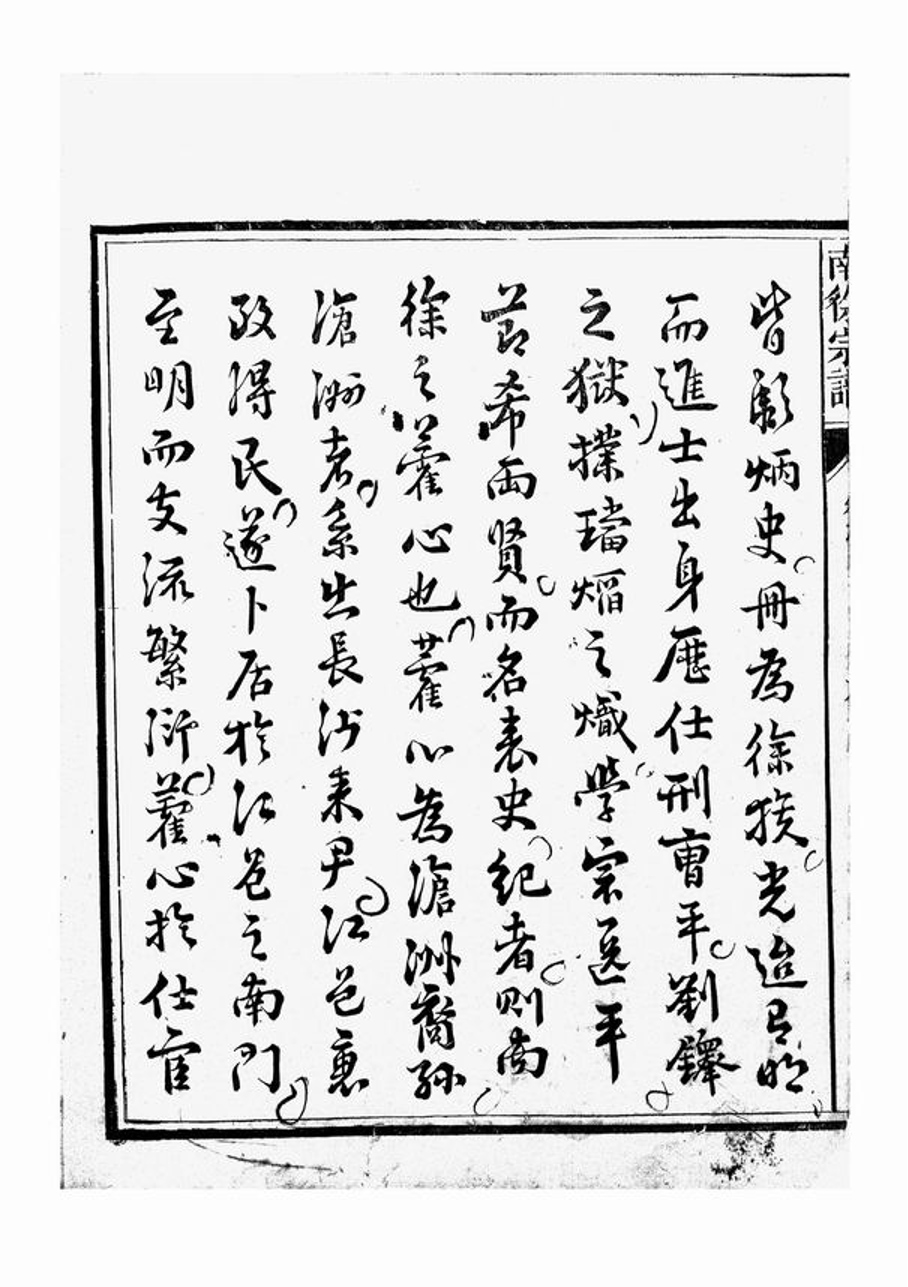 南徐宗譜
皆彪炳史冊為徐族光迨有明
而進士出身歷仕刑曹平劉鐸
之獄撲璫熖之熾學宗逸平
節希兩賢而名表史紀者則南
徐之藿心也藿心為滄洲裔孫
滄洲者系出長沙來尹江邑惠
政得民遂卜居於江邑之南門
至明而支流繁衍藿心於仕宦